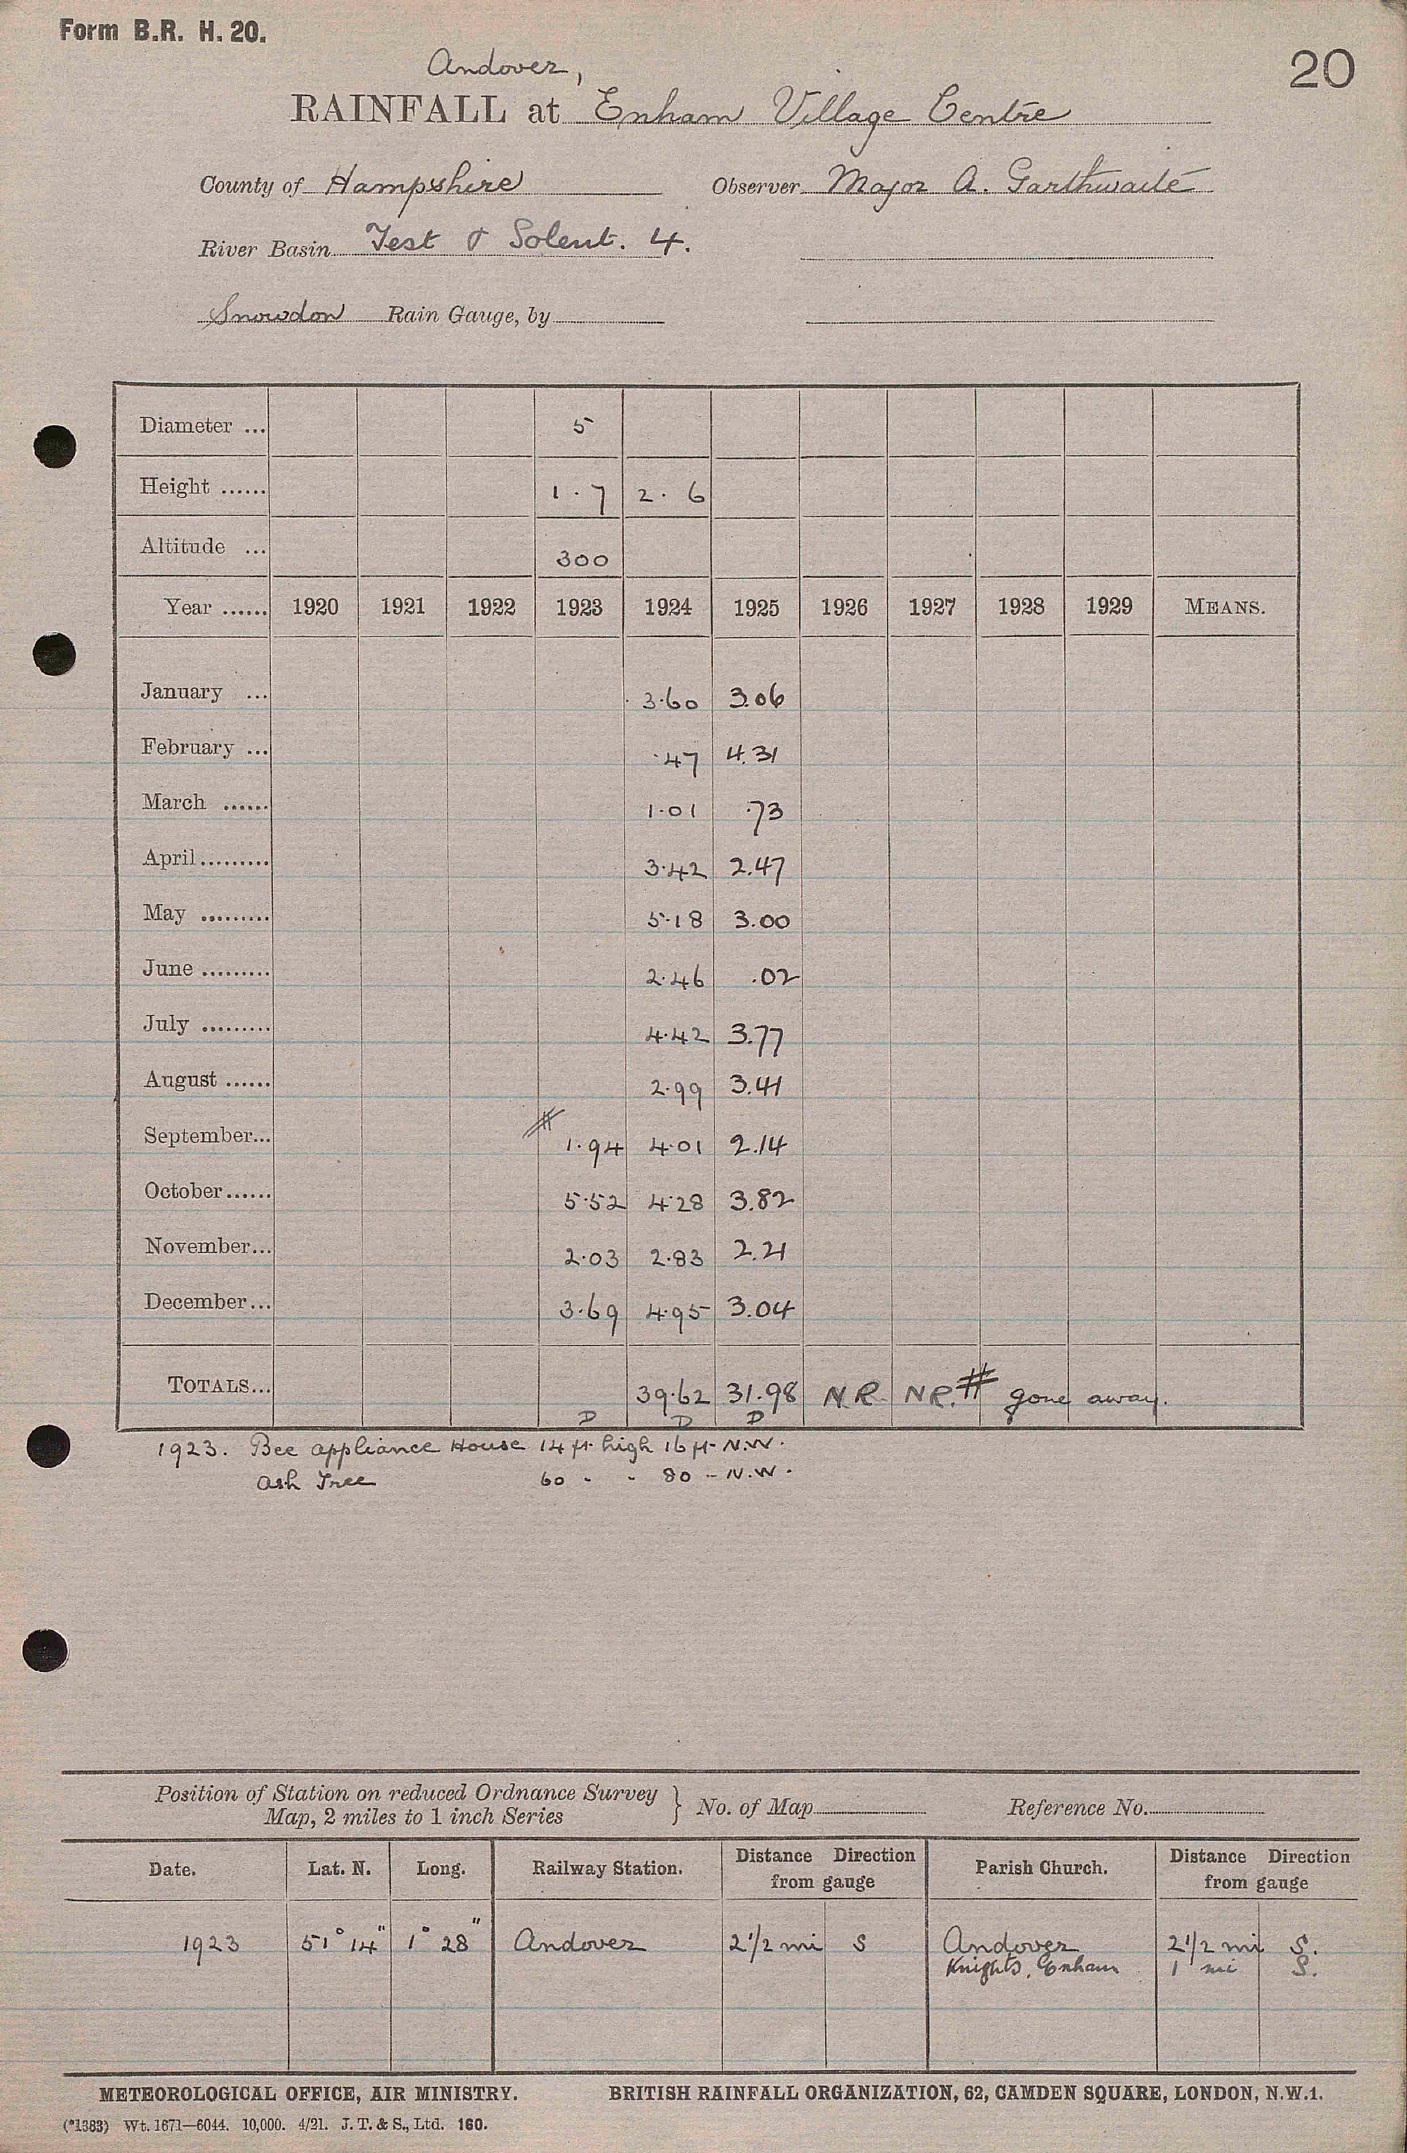 Form B.R. H. 20.
20
Andover,
RAINFALL at Enham Village Centre
County of Hampshire Observer Major A. Garthwaite
River Basin Test & Solent. 4.
Snowdon Rain Gauge, by
Diameter ... 5
Height ...... 1·7 2·6
Altitude ... 300
Year ...... 1920 1921 1922 1923 1924 1925 1926 1927 1928 1929 MEANS.
January ... 3·60 3.06
February ... ·47 4.31
March ...... 1·01 ·73
April ......... 3·42 2.47
May ......... 5·18 3.00
June ......... 2·46 .02
July ......... 4·42 3.77
August ...... 2·99 3.41
September... # 1·94 4·01 2.14
October...... 5·52 4·28 3.82
November... 2·03 2·83 2.21
December... 3·69 4·95 3.04
TOTALS... 39·62 31.98 N.R. N.R. # gone away.
D D D
1923. Bee appliance House 14 ft. high 16 ft. N.W.
Ash Tree 60 " " 80 " N.W.
Position of Station on reduced Ordnance Survey
Map, 2 miles to 1 inch Series } No. of Map Reference No.
Date. Lat. N. Long. Railway Station. Distance Direction from gauge Parish Church. Distance Direction from gauge
1923 51° 14" 1° 28" Andover 2 1/2 mi S Andover 2 1/2 mi S.
Knights, Enham 1 mi S.
METEOROLOGICAL OFFICE, AIR MINISTRY. BRITISH RAINFALL ORGANIZATION, 62, CAMDEN SQUARE, LONDON, N.W.1.
(*1383) Wt. 1671—6044. 10,000. 4/21. J. T. & S., Ltd. 160.